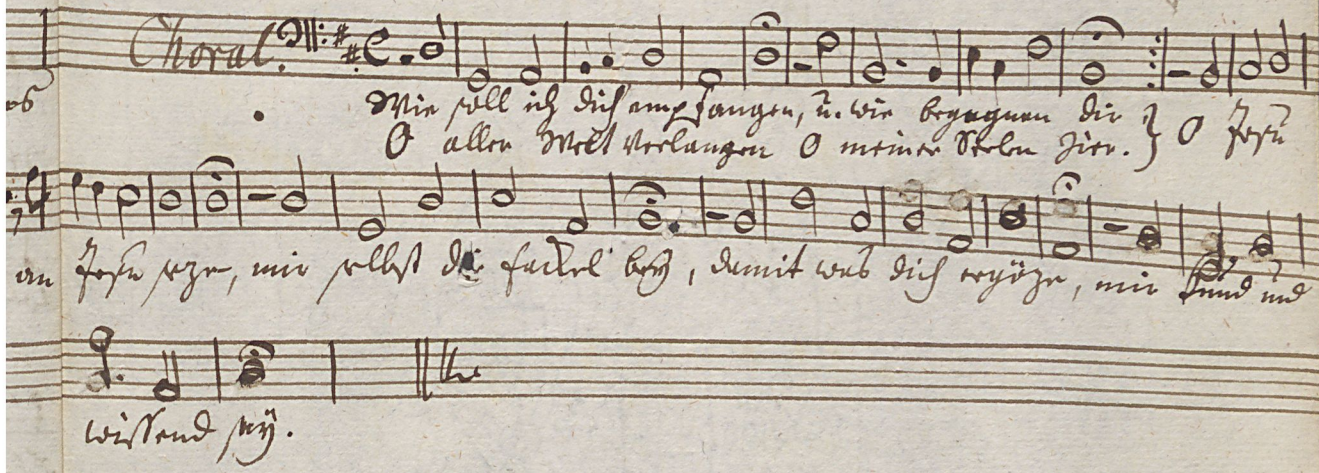 Choral.
Wie soll ich dich empfangen, u. wie begegnen dir
es
O aller Welt Verlangen O meiner Seelen Zier. } O Jesu
an Jesu seze, mir selbst die fackel bey, damit was dich ergöze, mir kund und
wissend sey.